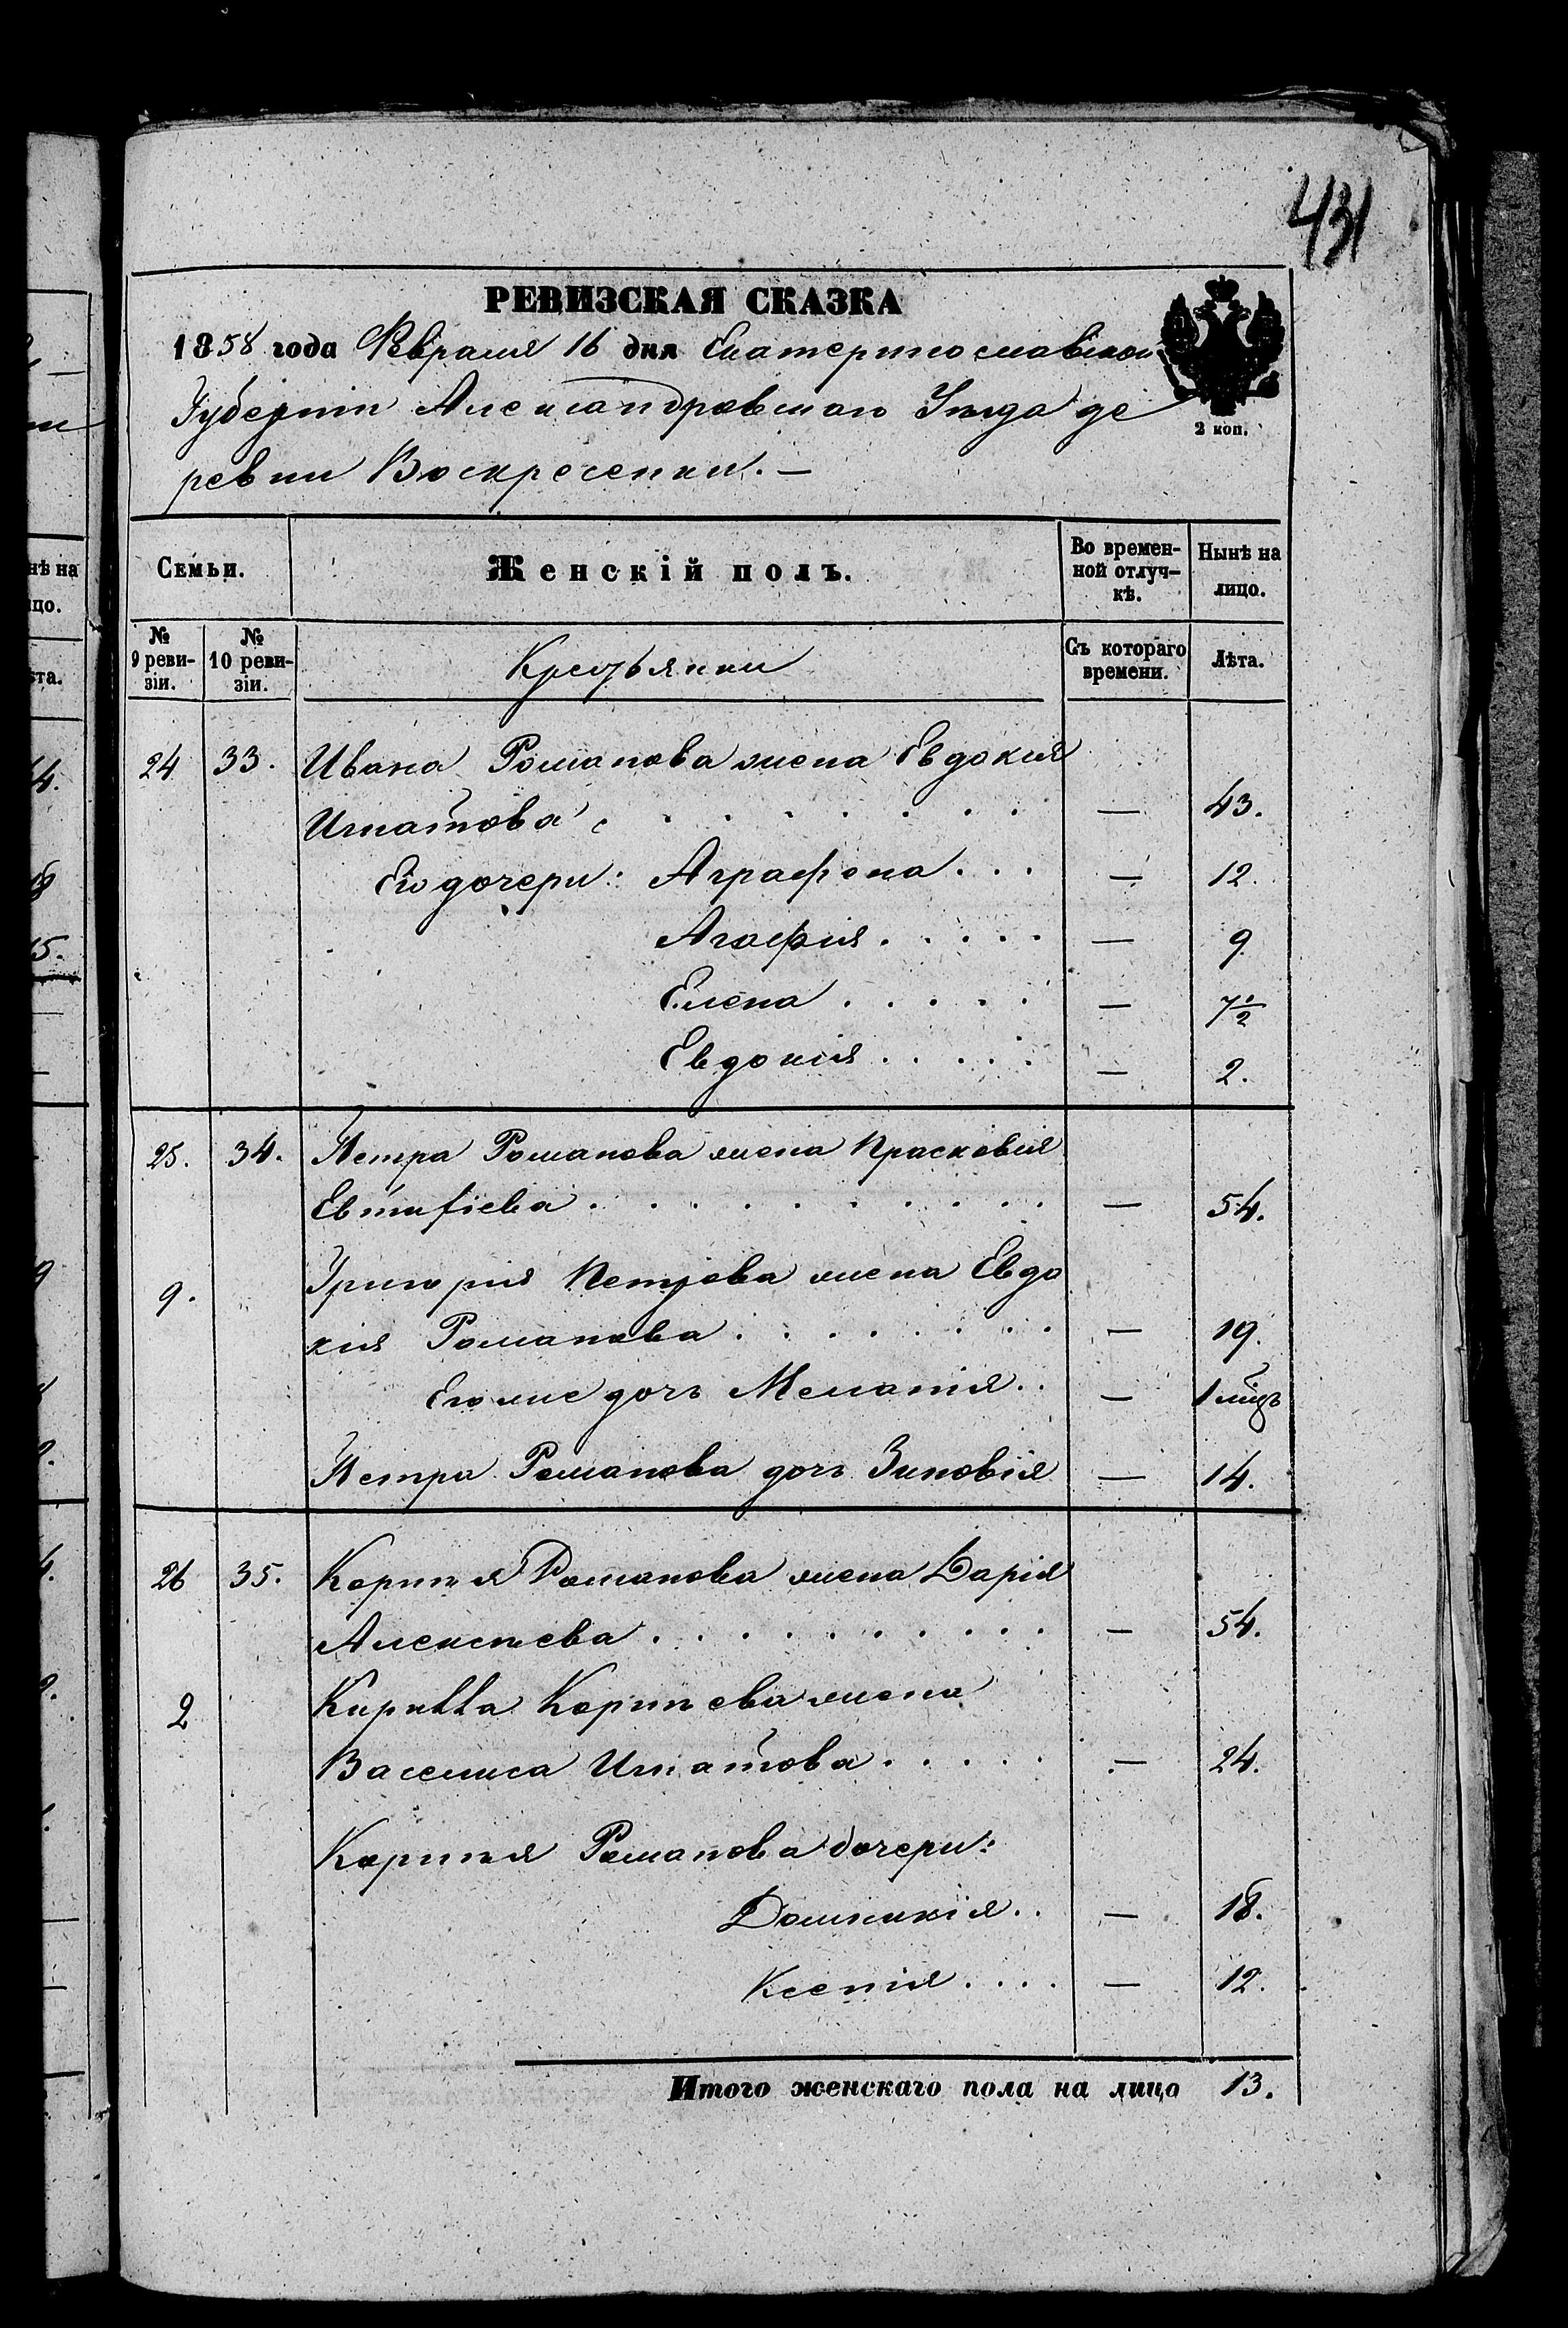 431
РЕВИЗСКАЯ СКАЗКА
1858 года Февраля 16 дня Екатеринославской
Губерніи Александровскаго Уѣзда де
ревни Воскресенки. —
2 коп.
Семьи.
Женскій полъ.
Во времен-
ной отлуч-
кѣ.
Нынѣ на
лицо.
№
9 реви-
зіи.
№
10 реви-
зіи.
Крестьянки
Съ котораго
времени.
Лѣта.
24 33. Ивана Романова жена Евдокия
Игнатова — 43.
Его дочери: Аграфена . . . — 12.
Агафия . . . . . — 9.
Елена . . . . . — 7 1/2
Евдокія . . . . . — 2.
25. 34. Петра Романова жена Прасковія
Евтифіева . . . . . . . . . . — 54.
9. Григорія Петрова жена Евдо
кия Романова . . . . . . . — 19.
Его же дочь Меланія . . — 1 мѣцъ
Петра Романова дочь Зиновія — 14.
26 35. Корнѣя Романова жена Дарія
Алексѣева . . . . . . . . . . — 54.
2 Кирилла Корнѣева жена
Василиса Игнатова . . . . . — 24.
Корнѣя Романова дочери:
Домникія . . — 18.
Ксенія . . . . — 12.
Итого женскаго пола на лицо 13.
нѣ на
цо.
ѣта.